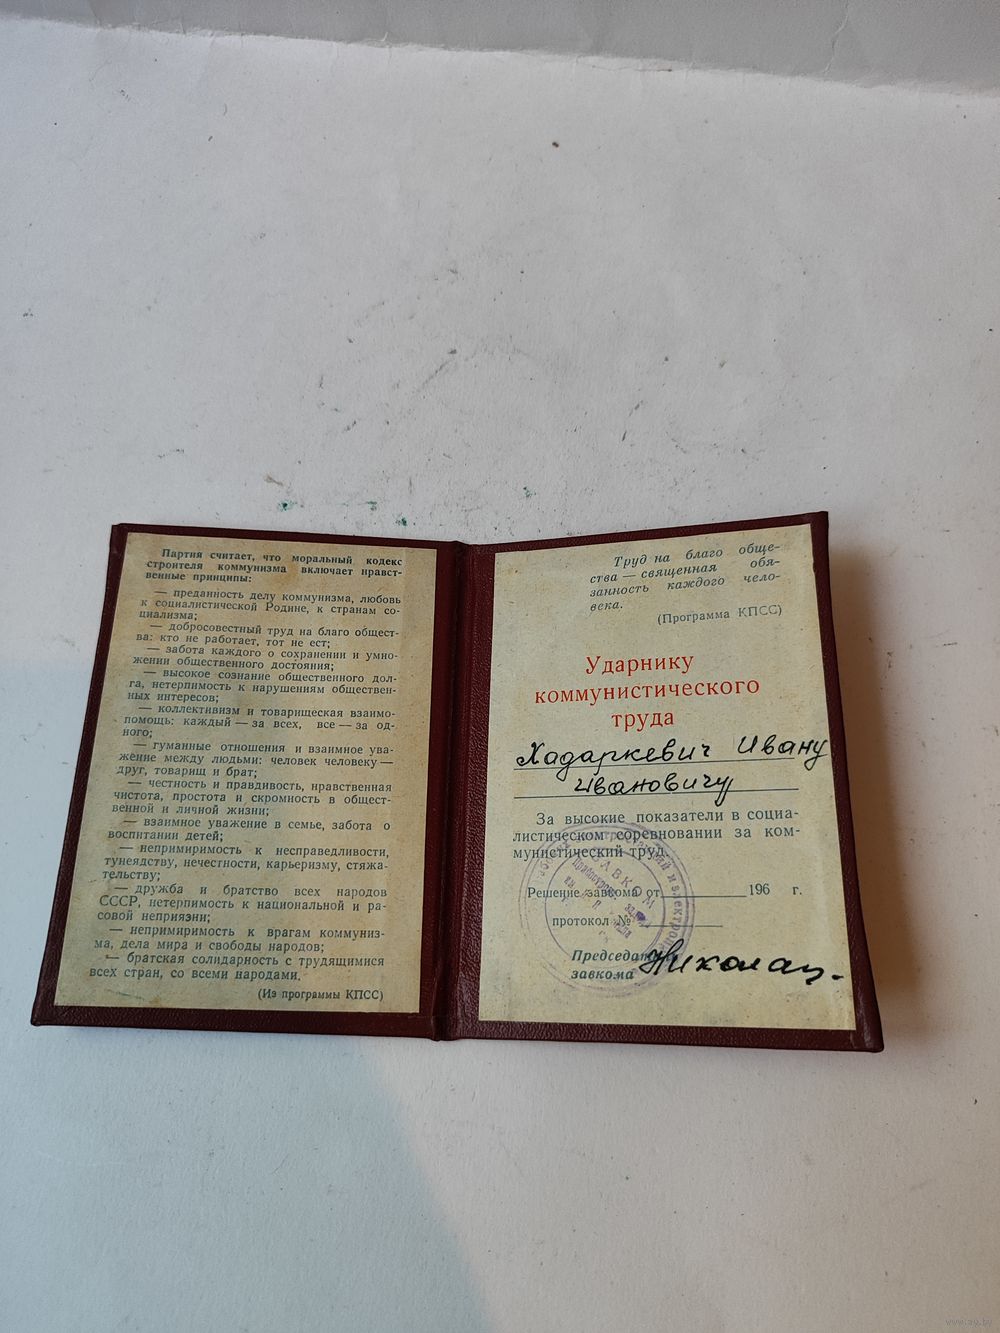 Партия считает, что моральный кодекс
строителя коммунизма включает нравст-
венные принципы:
— преданность делу коммунизма, любовь
к социалистической Родине, к странам со-
циализма;
— добросовестный труд на благо общест-
ва: кто не работает, тот не ест;
— забота каждого о сохранении и умно-
жении общественного достояния;
— высокое сознание общественного дол-
га, нетерпимость к нарушениям обществен-
ных интересов;
— коллективизм и товарищеская взаимо-
помощь: каждый — за всех, все — за од-
ного;
— гуманные отношения и взаимное ува-
жение между людьми: человек человеку —
друг, товарищ и брат;
— честность и правдивость, нравственная
чистота, простота и скромность в общест-
венной и личной жизни;
— взаимное уважение в семье, забота о
воспитании детей;
— непримиримость к несправедливости,
тунеядству, нечестности, карьеризму, стяжа-
тельству;
— дружба и братство всех народов
СССР, нетерпимость к национальной и ра-
совой неприязни;
— непримиримость к врагам коммуниз-
ма, дела мира и свободы народов;
— братская солидарность с трудящимися
всех стран, со всеми народами.
(Из программы КПСС)
Труд на благо обще-
ства — священная обя-
занность каждого чело-
века.
(Программа КПСС)
Ударнику
коммунистического
труда
Хадаркевич Ивану
Ивановичу
За высокие показатели в социа-
листическом соревновании за ком-
мунистический труд.
Решение завкома от 196 г.
протокол №
Председатель
завкома
ЗАВКОМ
www.ay.by